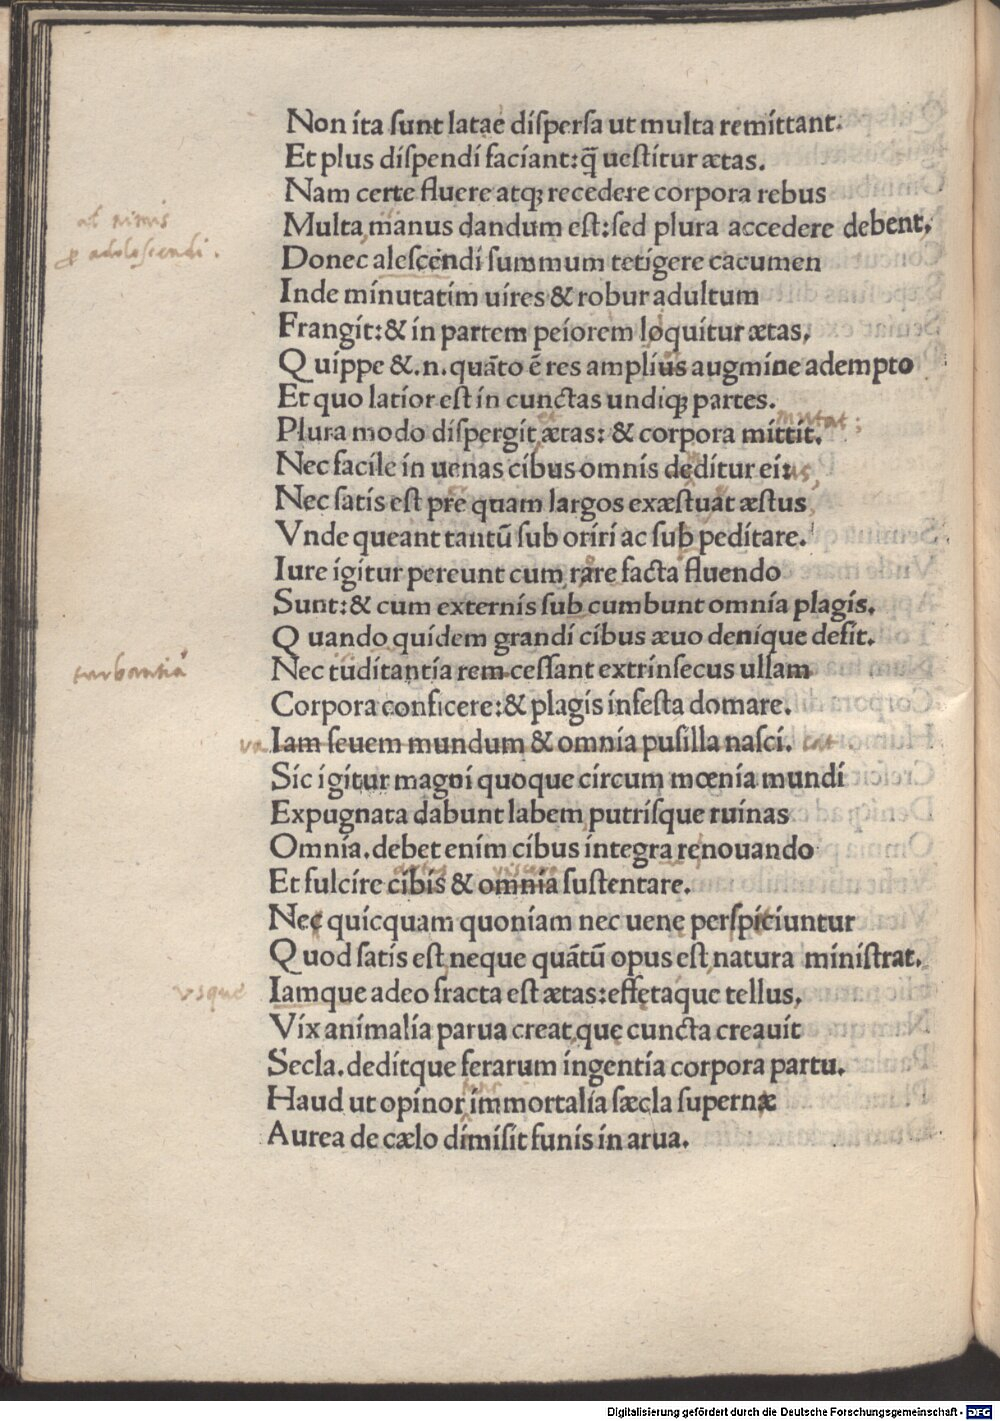 Non ita sunt latae dispersa ut multa remittant.
Et plus dispendi faciant: q̃ uestitur ætas.
Nam certe fluere atq; recedere corpora rebus
Multa manus dandum est: sed plura accedere debent,
Donec alescendi summum tetigere cacumen
Inde minutatim uires & robur adultum
Frangit: & in partem peiorem loquitur ætas,
Quippe &.n. quãto ẽ res amplius augmine adempto
Et quo latior est in cunctas undiq; partes.
mutat;
Plura modo dispergit ætas: & corpora mittit.
Nec facile in uenas cibus omnis deditur ei:
Nec satis est pre quam largos exæstuat æstus
Vnde queant tantũ sub oriri ac sub peditare.
Iure igitur pereunt cum rare facta fluendo
Sunt: & cum externis sub cumbunt omnia plagis.
Quando quidem grandi cibus æuo denique desit.
turbantia
Nec tuditantia rem cessant extrinsecus ullam
Corpora conficere: & plagis infesta domare.
va Iam seuem mundum & omnia pusilla nasci. cat
Sic igitur magni quoque circum mœnia mundi
Expugnata dabunt labem putrisque ruinas
Omnia. debet enim cibus integra renouando
Et fulcire cibis & omnia sustentare.
Nec quicquam quoniam nec uene perspiciuntur
Quod satis est neque quãtũ opus est natura ministrat.
vsque
Iamque adeo fracta est ætas: effetaque tellus,
Vix animalia parua creat que cuncta creauit
Secla. deditque ferarum ingentia corpora partu.
Haud ut opinor immortalia sæcla supernæ
Aurea de cælo dimisit funis in arua.
Digitalisierung gefördert durch die Deutsche Forschungsgemeinschaft - DFG